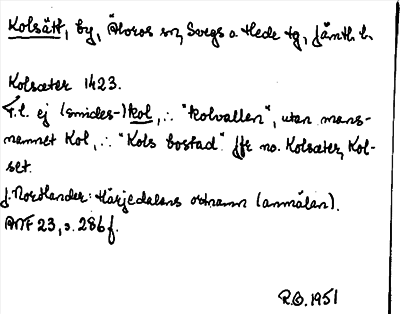 Kolsätt, by, Älvros sn, Svegs o Hede tg, Jämtl. l.
Kolsæter 1423.
F.l. ej (smides-)kol, ∴ "kolvallen", utan mans-
namnet Kol, ∴ "Kols bostad" jfr no. Kolsæter, Kol-
set.
J. Nordlander: Härjedalens ortnamn (anmälan).
ANF 23, s. 286 f.
R.O. 1951